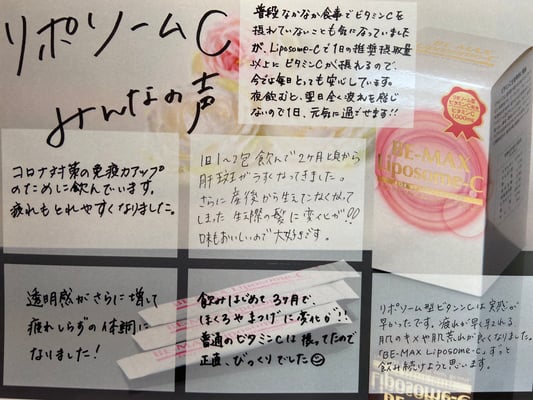 リポソームC
みんなの声
普段なかなか食事でビタミンCを
摂れていないことも気になっていました
が、Liposome-Cで1日の推奨摂取量
以上にビタミンCが摂れるので、
今では毎日とっても安心しています。
夜飲むと、翌日全く疲れを感じ
ないので1日、元気に過ごせます!!
リポソーム型
ビタミンC
1,000mg
BE-MAX
Liposome-C
コロナ対策の免疫力アップ
のために飲んでいます。
疲れもとれやすくなりました。
1日1〜2包飲んで2ヶ月頃から
肝斑がうすくなってきました。
さらに産後から生えてこなくなって
しまった生え際の髪に変化が!!
味もおいしいので大好きです。
透明感がさらに増して
疲れしらずの体調に
なりました!
飲みはじめて3ヶ月で、
ほくろやまつげに変化が!!
普通のビタミンCは摂ってたので
正直、びっくりでした
リポソーム型ビタミンCは実感が
早かったです。疲れが早くとれる、
肌のキメや肌荒れが良くなりました。
「BE-MAX Liposome-C」ずっと
飲み続けようと思います。